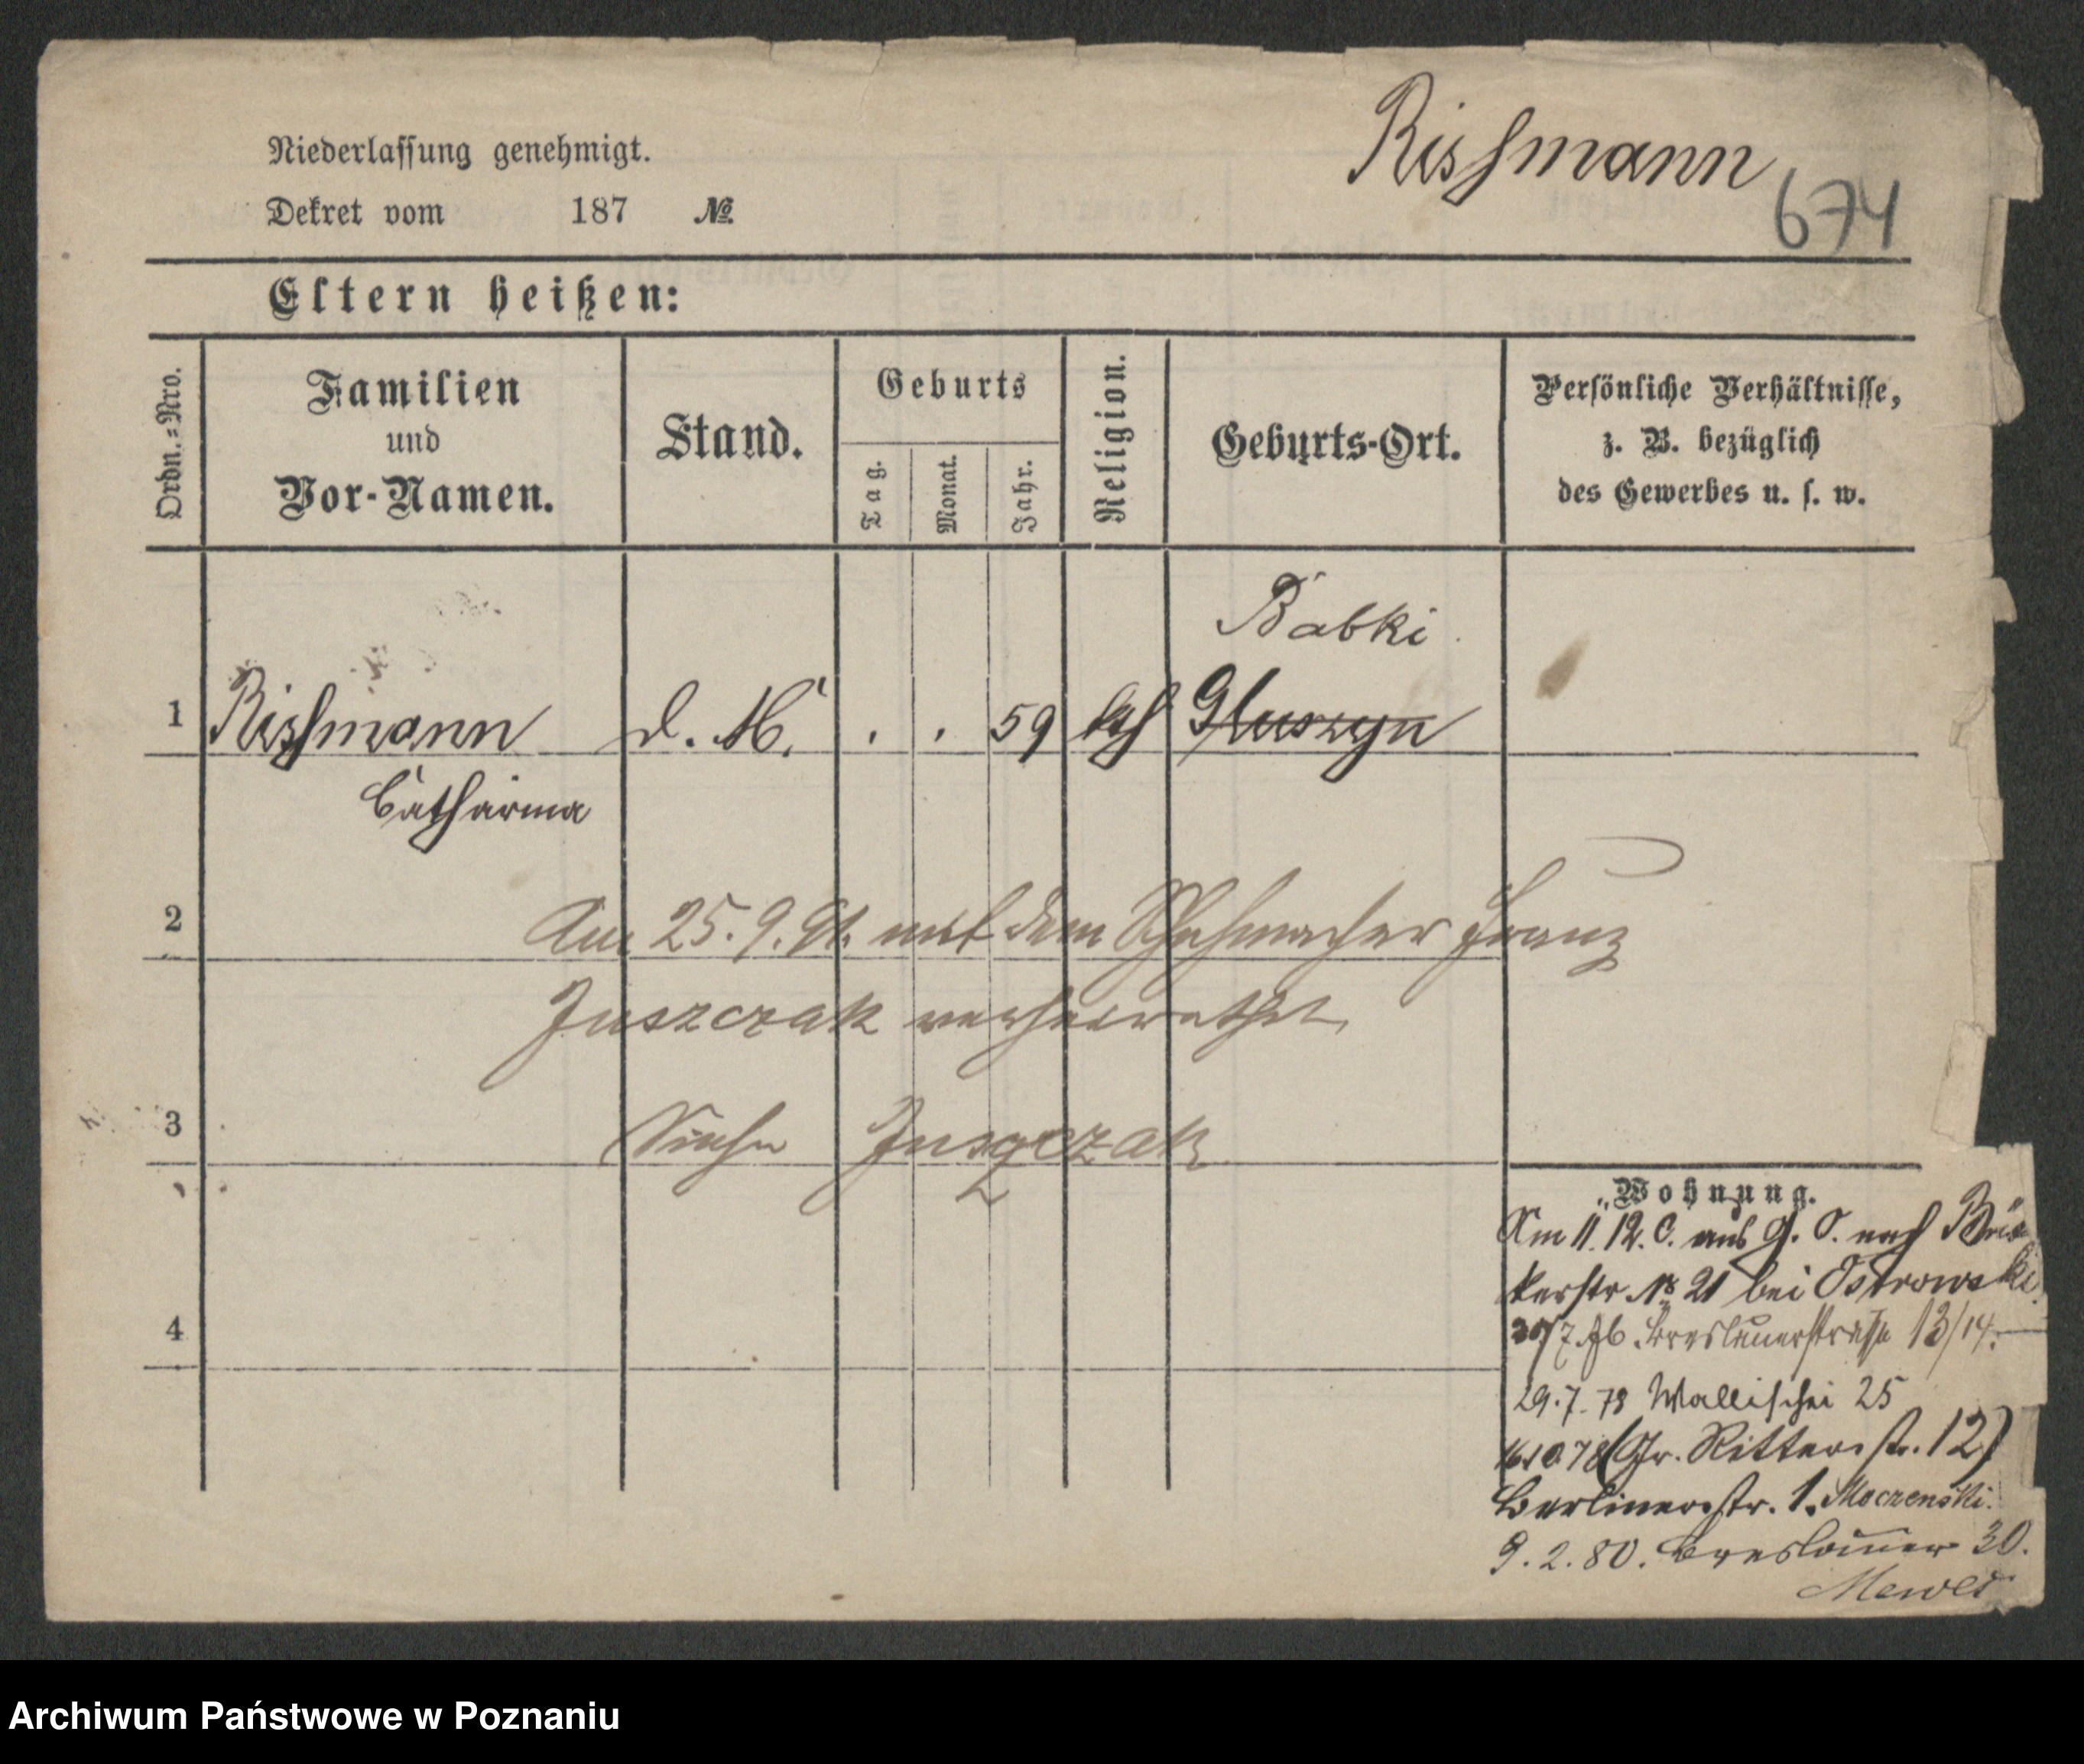 Niederlassung genehmigt.
Rissmann
674
Dekret vom 187 №
Eltern heißen:
Ordn.=Nro.
Familien
und
Vor-Namen.
Stand.
Geburts
Tag.
Monat.
Jahr.
Religion.
Geburts-Ort.
Persönliche Verhältnisse,
z. B. bezüglich
des Gewerbes u. s. w.
Babki
1 Rissmann d. M. . . 59 kth Gluszyn
Catharina
2 Am 25. 9. 81. mit dem Schuhmacher Franz
Juszczak verheirathet.
3 Siehe Juszczak
4
Wohnung.
Am 11. 12. C. aus G. O. nach
No 21 bei Ostrowski
30/7. Breslauerstraße 13/14.
29. 7. 78 Wallischei 25
16 10 78 (Gr. Ritterstr. 12)
Berlinerstr. 1. Moczenski.
9. 2. 80. Breslauer 30.